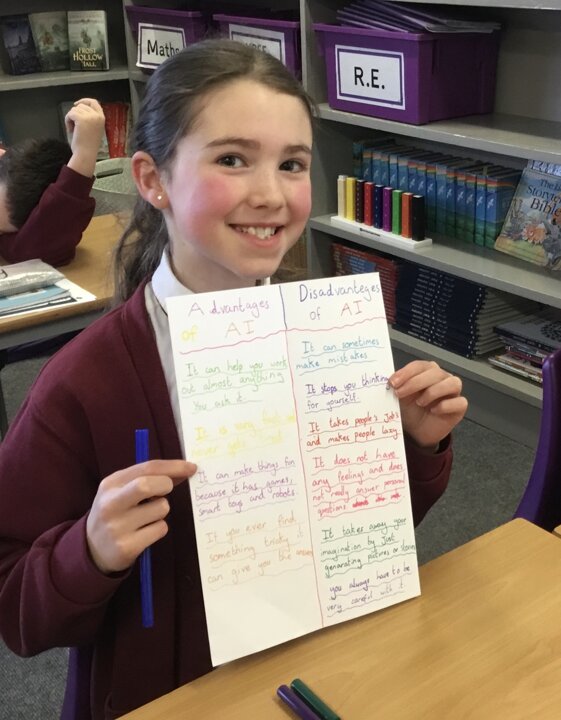 FROST
HOLLOW
HALL
Maths
R.E.
The Lion
Storyteller
Bible
Advantages
of AI
It can help you work
out almost anything
You ask it.
It is very fast and
never gets
It can make things fun
because it has games,
smart toys and robots.
If you ever find
something tricky it
can give you the answer
Disadvanteges
of AI
It can sometimes
make mistakes.
It stops you thinking
for yourself.
It takes people's Job's
and makes people lazy.
It does not have
any feelings and does
not really answer personal
questions.
It takes away your
imagination by Just
genarating pictures or stories
you always have to be
very careful with it.